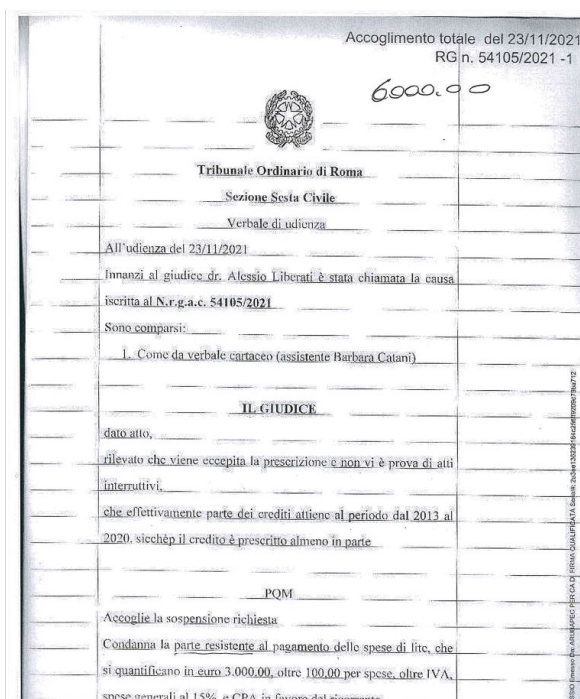 Accoglimento totale del 23/11/2021
RG n. 54105/2021 -1
6000.00
Tribunale Ordinario di Roma
Sezione Sesta Civile
Verbale di udienza
All'udienza del 23/11/2021
Innanzi al giudice dr. Alessio Liberati è stata chiamata la causa
iscritta al N.r.g.a.c. 54105/2021
Sono comparsi:
1. Come da verbale cartaceo (assistente Barbara Catani)
IL GIUDICE
dato atto,
rilevato che viene eccepita la prescrizione e non vi è prova di atti
interruttivi,
che effettivamente parte dei crediti attiene al periodo dal 2013 al
2020, sicchèp il credito è prescritto almeno in parte
PQM
Accoglie la sospensione richiesta
Condanna la parte resistente al pagamento delle spese di lite, che
si quantificano in euro 3.000,00, oltre 100,00 per spese, oltre IVA,
spese generali al 15% e CPA in favore del ricorrente
Emesso Da: ARUBAPEC PER CA DI FIRMA QUALIFICATA Serial#: